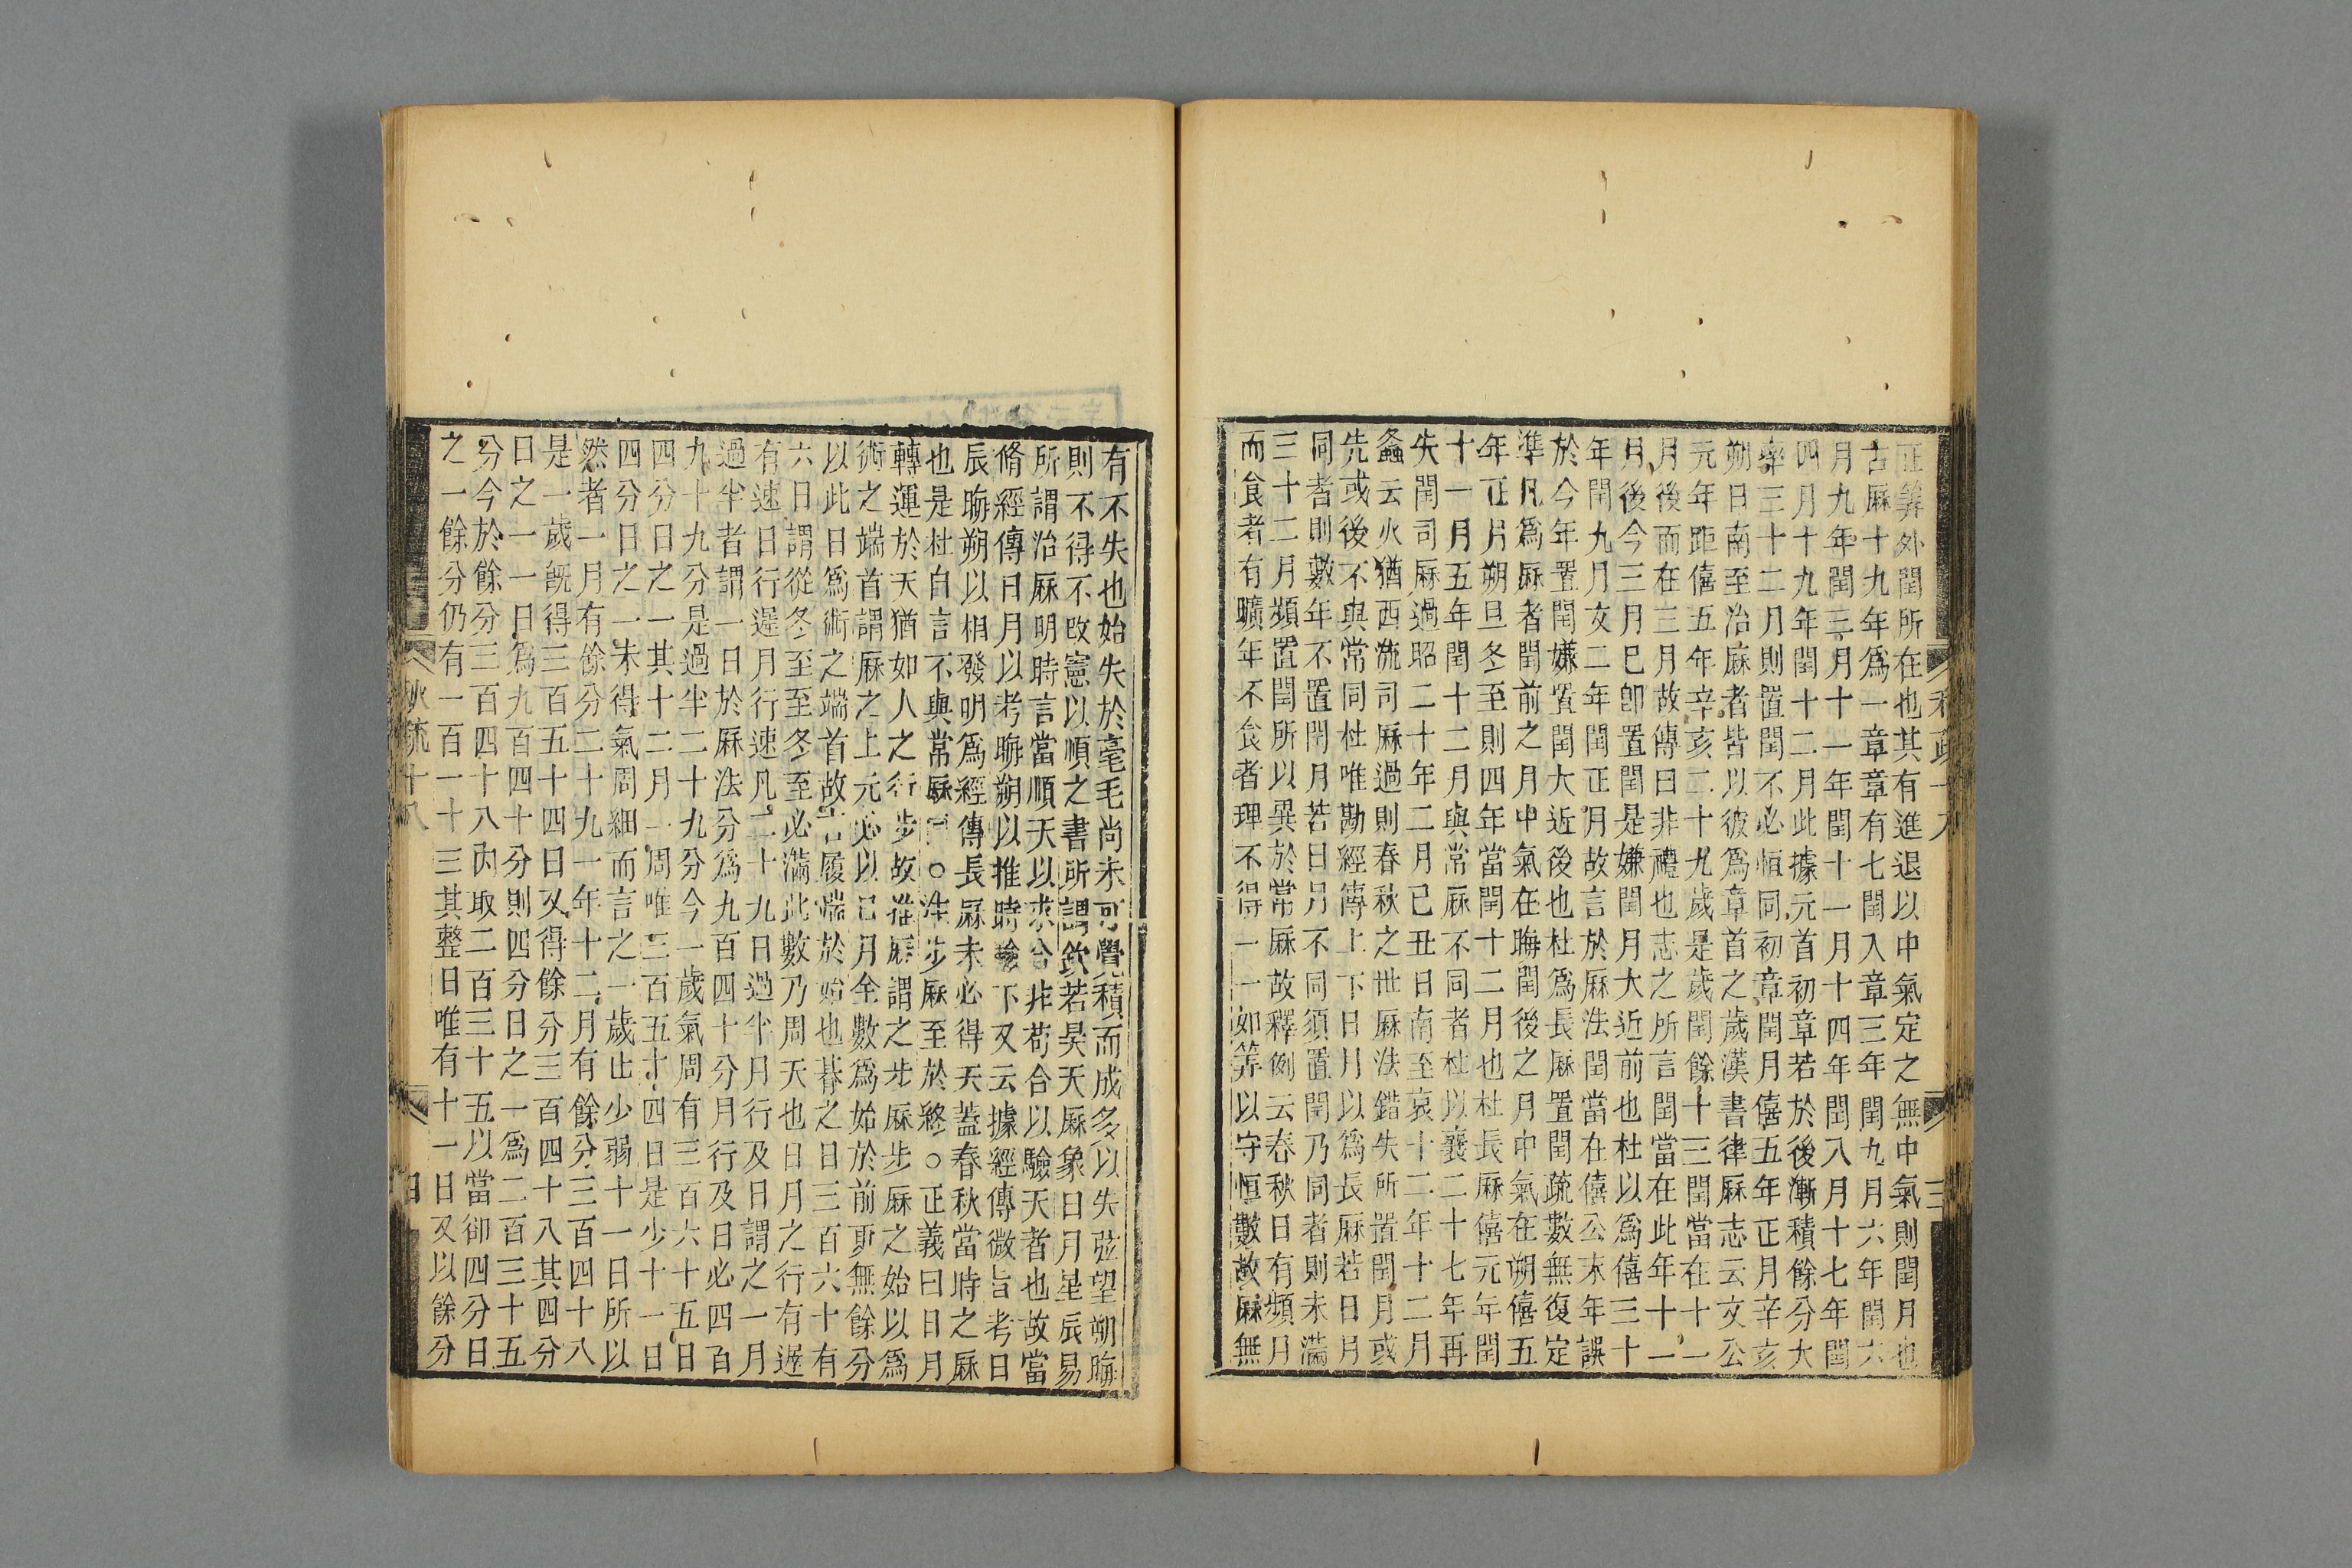 正筭外閏所在也其有進退以中氣定之無中氣則閏月也
古厤十九年爲一章章有七閏入章三年閏九月六年閏六
月九年閏三月十一年閏十一月十四年閏八月十七年閏
四月十九年閏十二月此據元首初章若於後漸積餘分大
率三十二月則置閏不必恒同初章閏月僖五年正月辛亥
朔日南至治厤者皆以彼爲章首之歲漢書律厤志云文公
元年距僖五年辛亥二十九歲是歲閏餘十三閏當在十一
月後而在三月故傳曰非禮也志之所言閏當在此年十一
月後今三月已卽置閏是嫌閏月大近前也杜以爲僖三十
年閏九月文二年閏正月故言於厤法閏當在僖公末年誤
於今年置閏嫌置閏大近後也杜爲長厤置閏疏數無復定
準凡爲厤者閏前之月中氣在晦閏後之月中氣在朔僖五
年正月朔旦冬至則四年當閏十二月也杜長厤僖元年閏
十一月五年閏十二月與常厤不同者杜以襄二十七年再
失閏司厤過昭二十年二月己丑日南至哀十二年十二月
螽云火猶西流司厤過則春秋之世厤法錯失所置閏月或
先或後不與常同杜唯勘經傳上下日月以爲長厤若日月
同者則數年不置閏月若日月不同須置閏乃同者則未滿
三十二月頻置閏所以異於常厤故釋例云春秋日有頻月
而食者有曠年不食者理不得一一如筭以守恒數故厤無
有不失也始失於毫毛尚未可覺積而成多以失弦望朔晦
則不得不改憲以順之書所謂欽若昊天厤象日月星辰易
所謂治厤明時言當順天以求合非苟合以驗天者也故當
脩經傳日月以考晦朔以推時驗下又云據經傳微旨考日
辰晦朔以相發明爲經傳長厤未必得天蓋春秋當時之厤
也是杜自言不與常厤同○注步厤至於終○正義曰日月
轉運於天猶如人之行步故推厤謂之步厤步厤之始以爲
術之端首謂厤之上元必以日月全數爲始於前更無餘分
以此日爲術之端首故言履端於始也朞之日三百六十有
六日謂從冬至至冬至必滿此數乃周天也日月之行有遲
有速日行遲月行速凡二十九日過半月行及日謂之一月
過半者謂一日於厤法分爲九百四十分月行及日必四百
九十九分是過半二十九分今一歲氣周有三百六十五日
四分日之一其十二月一周唯三百五十四日是少十一日
四分日之一未得氣周細而言之一歲止少弱十一日所以
然者一月有餘分二十九一年十二月有餘分三百四十八
是一歲旣得三百五十四日又得餘分三百四十八其四分
日之一一日爲九百四十分則四分日之一爲二百三十五
分今於餘分三百四十八內取二百三十五以當卻四分日
之一餘分仍有一百一十三其整日唯有十一日又以餘分
秋疏十八